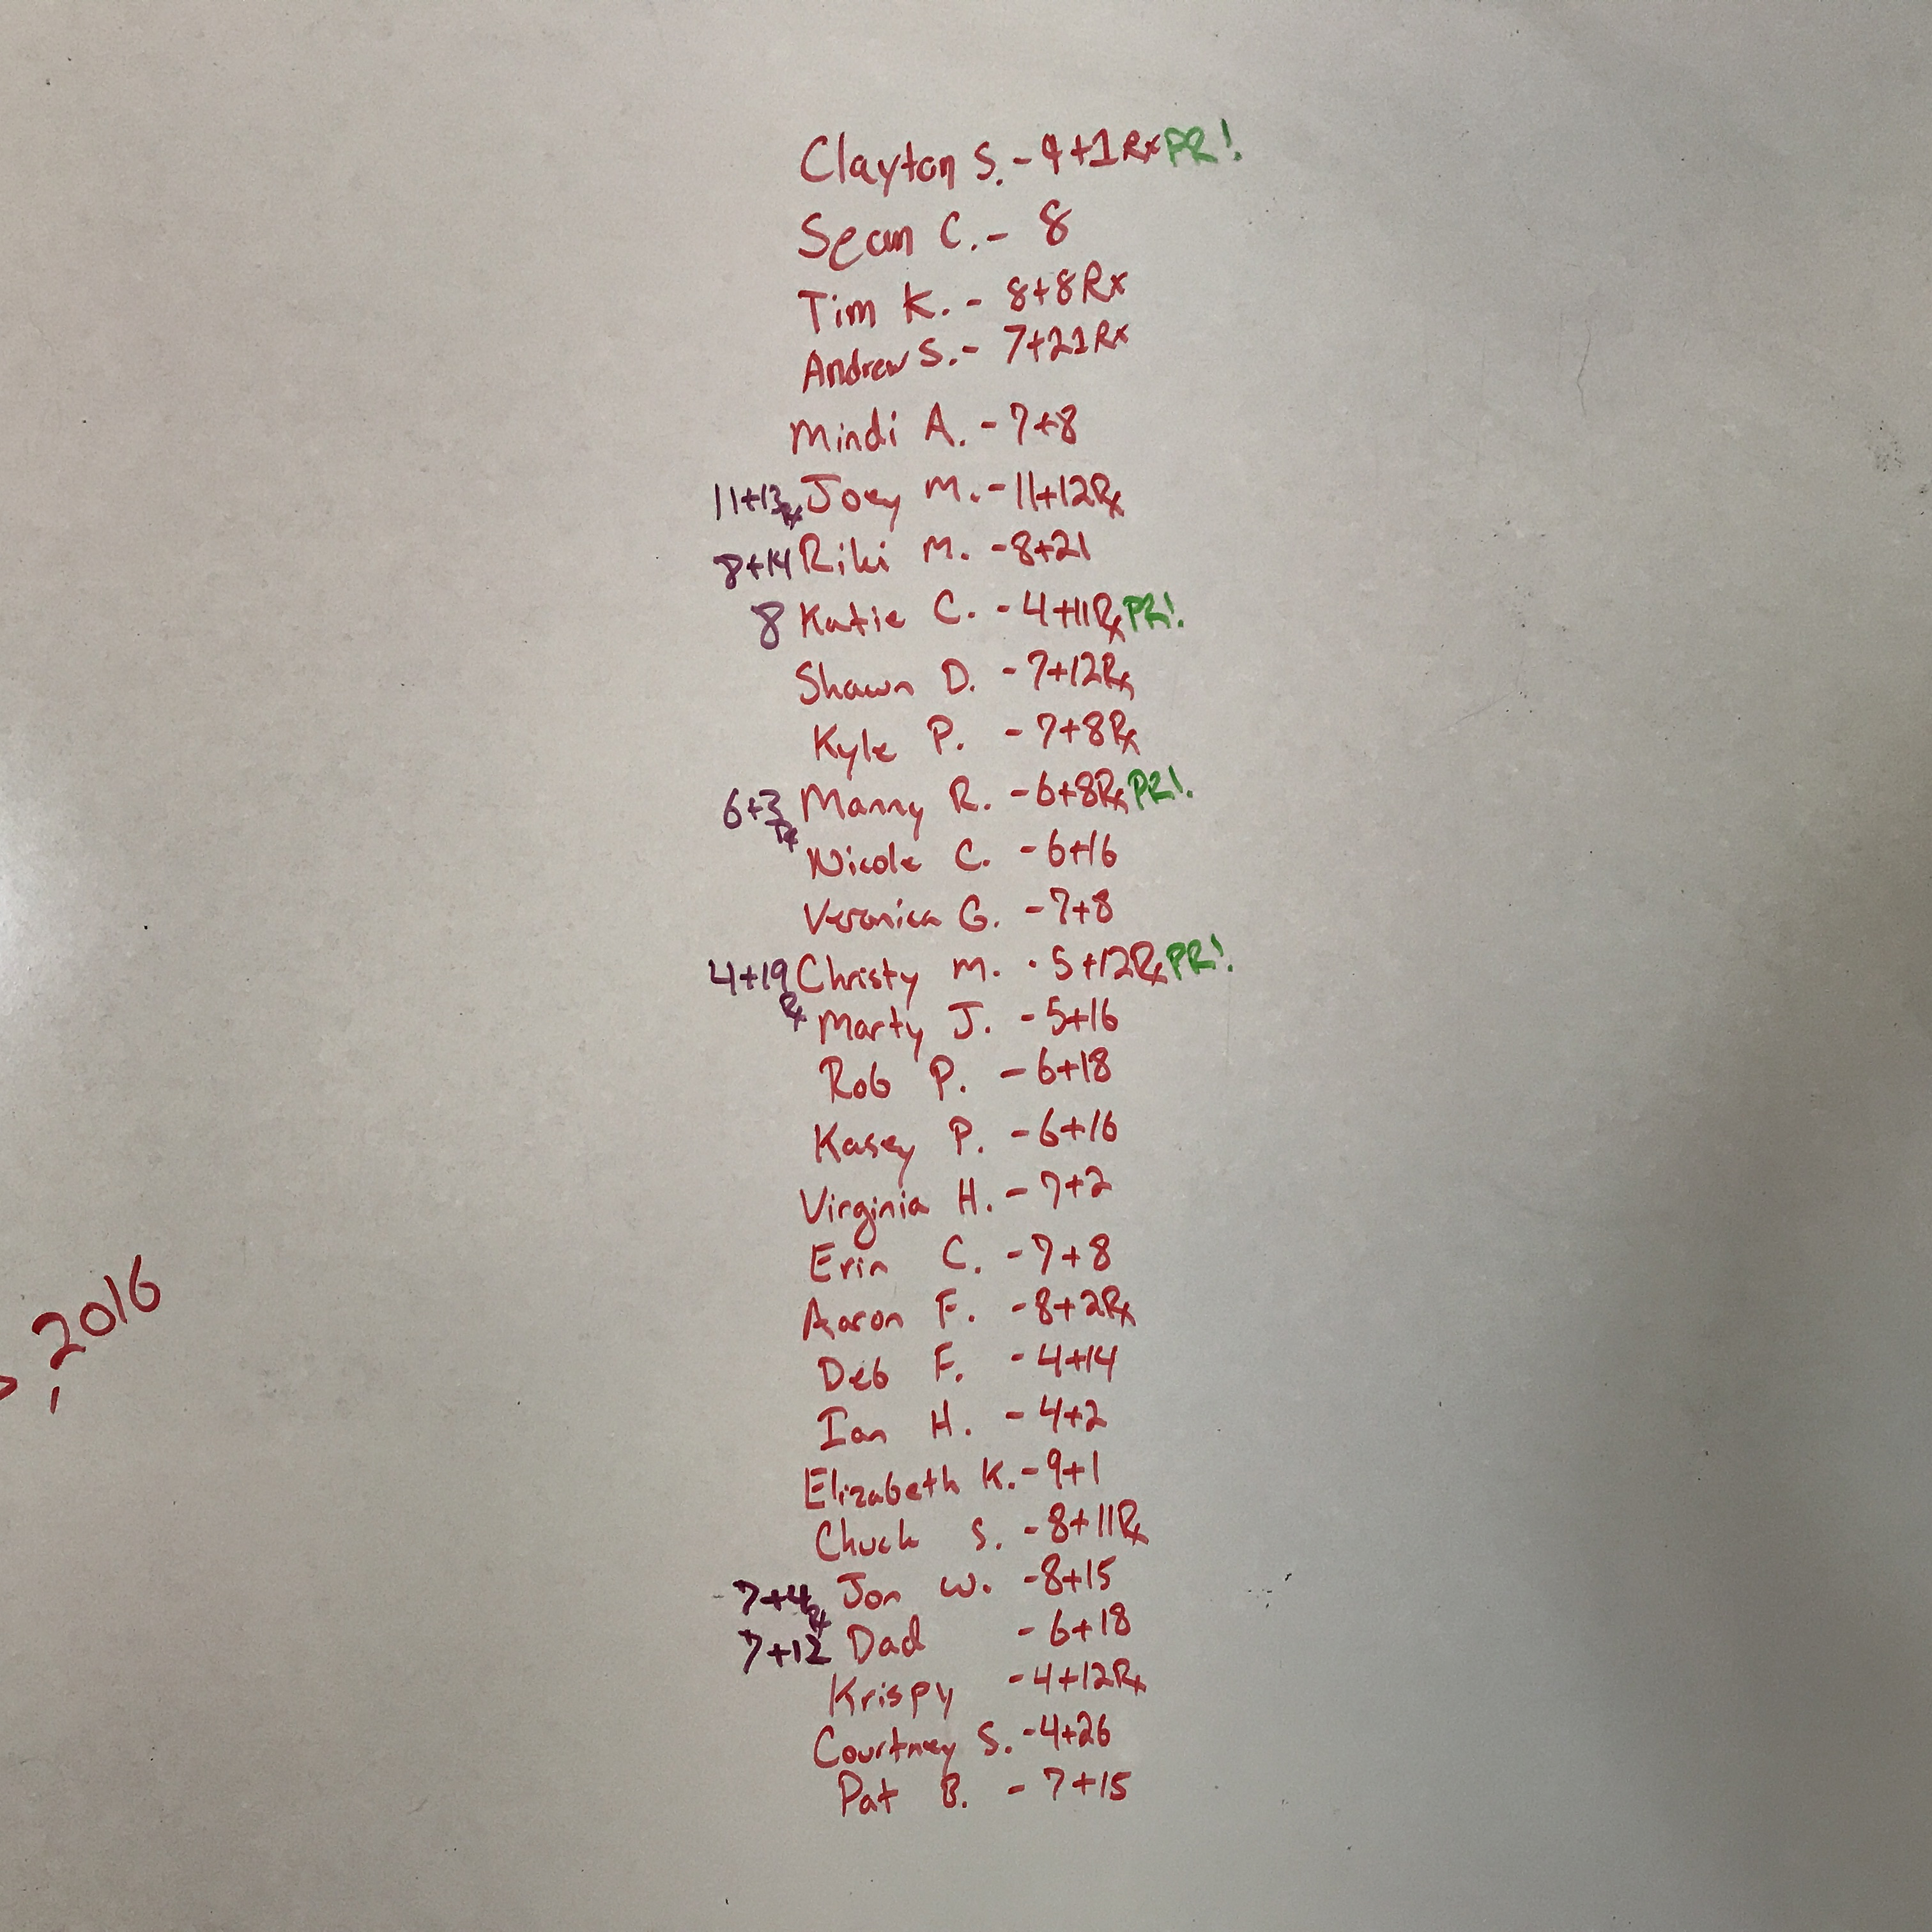 Clayton S. - 9+1 Rx PR!
Sean C. - 8
Tim K. - 8+8 Rx
Andrew S. - 7+21 Rx
Mindi A. - 7+8
11+13 Rx Joey M. - 11+12 Rx
8+14 Riki M. - 8+21
8 Katie C. - 4+11 Rx PR!
Shawn D. - 7+12 Rx
Kyle P. - 7+8 Rx
6+3 Rx Manny R. - 6+8 Rx PR!
Nicole C. - 6+16
Veronica G. - 7+8
4+19 Rx Christy M. - 5+12 Rx PR!
Marty J. - 5+16
Rob P. - 6+18
Kasey P. - 6+16
Virginia H. - 7+2
Erin C. - 7+8
Aaron F. - 8+2 Rx
Deb F. - 4+14
Ian H. - 4+2
Elizabeth K. - 9+1
Chuck S. - 8+11 Rx
7+4 Rx Jon W. - 8+15
7+12 Dad - 6+18
Krispy - 4+12 Rx
Courtney S. - 4+26
Pat B. - 7+15
2016